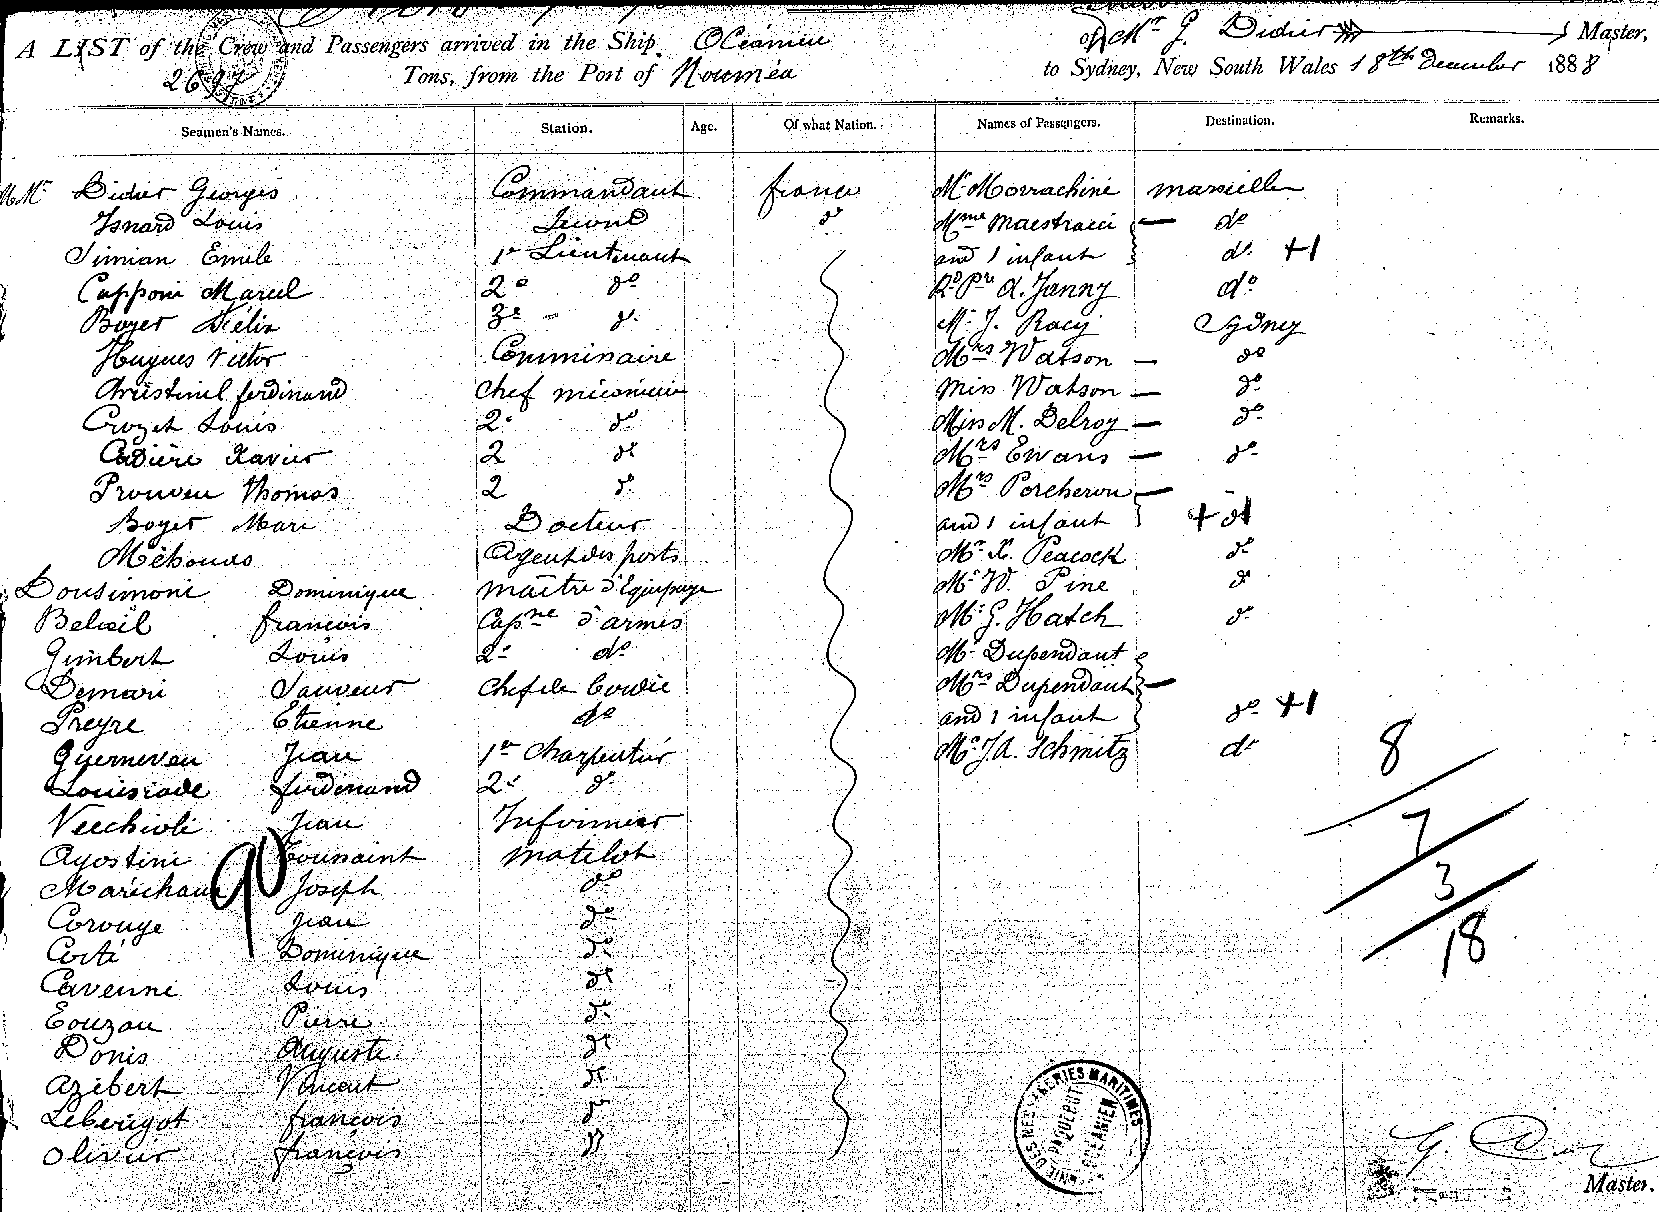 A LIST of the Crew and Passengers arrived in the Ship Océanien of Mr G. Didier Master,
2697 Tons, from the Port of Nouméa to Sydney, New South Wales 18th December 1888
Seamen's Names. Station. Age. Of what Nation. Names of Passengers. Destination. Remarks.
MMrs Didier Georges Commandant france Mr Morrachine Marseille
Isnard Louis Second do Mme Maestracci — do
Simian Emile 1er Lieutenant and 1 infant do +1
Capponi Marcel 2e do Rd Pre A. Janny do
Boyer Délix 3e - do Mr J. Racy Sydney
Hugues Victor Commissaire Mrs Watson — do
Christinil ferdinand Chef mécanicien Miss Watson — do
Crozet Louis 2e do Miss M. Delroy — do
Cadière Xavier 2 do Mrs Ewans — do
Prouveu Thomas 2 do Mrs Porcheron —
Boyer Mari Docteur and 1 infant + do 1
Méhouas Agent des posts Mr X. Peacock do
Dousimoni Dominique maître d'Equipage Mr W. Pine do
Belieil francois Capne d'armes Mr G. Hatch do
Gimbert Louis 2e do Mr Dupendant
Demari Sauveur Chef de Mrs Dupendant —
Preyre Etienne do and 1 infant do +1
Guerneven Jean 1er Charpentier Mr J.A. Schmitz do
Louisiade ferdinand 2e do 8
Vecchioli Jean Infirmier 7
Agostini Toussaint matelot 3
Maréchaux Joseph do
90
Corouge Jean do 18
Corté Dominique do
Cavenne Louis do
Eouzan Pierre do
Donis Auguste do
Azibert Vincent do
Leberigot francois do
Olivier françois do
CNIE DES MESSAGERIES MARITIMES
PAQUEBOT
OCEANIEN
G. Didier
Master.